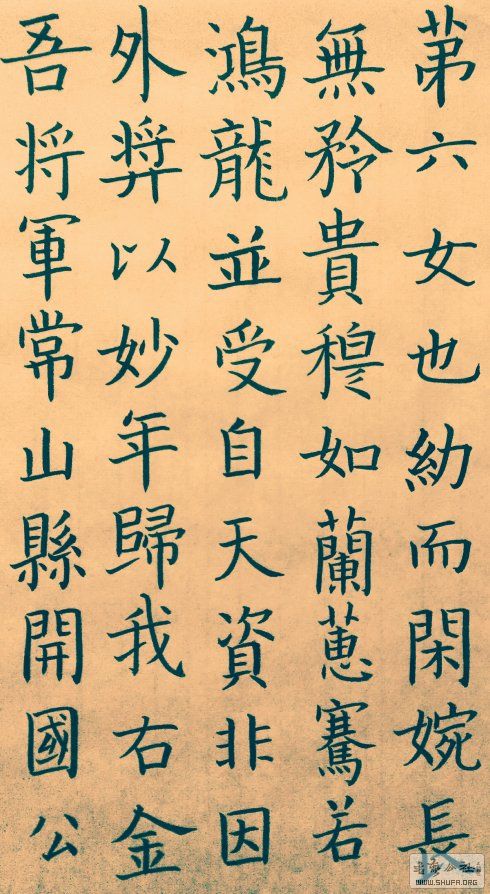 苐六女也幼而閑婉長
無矜貴穆如蘭蕙騫若
鴻龍並受自天資非因
外奨以妙年歸我右金
吾将軍常山縣開國公
WWW.SHUFA.ORG